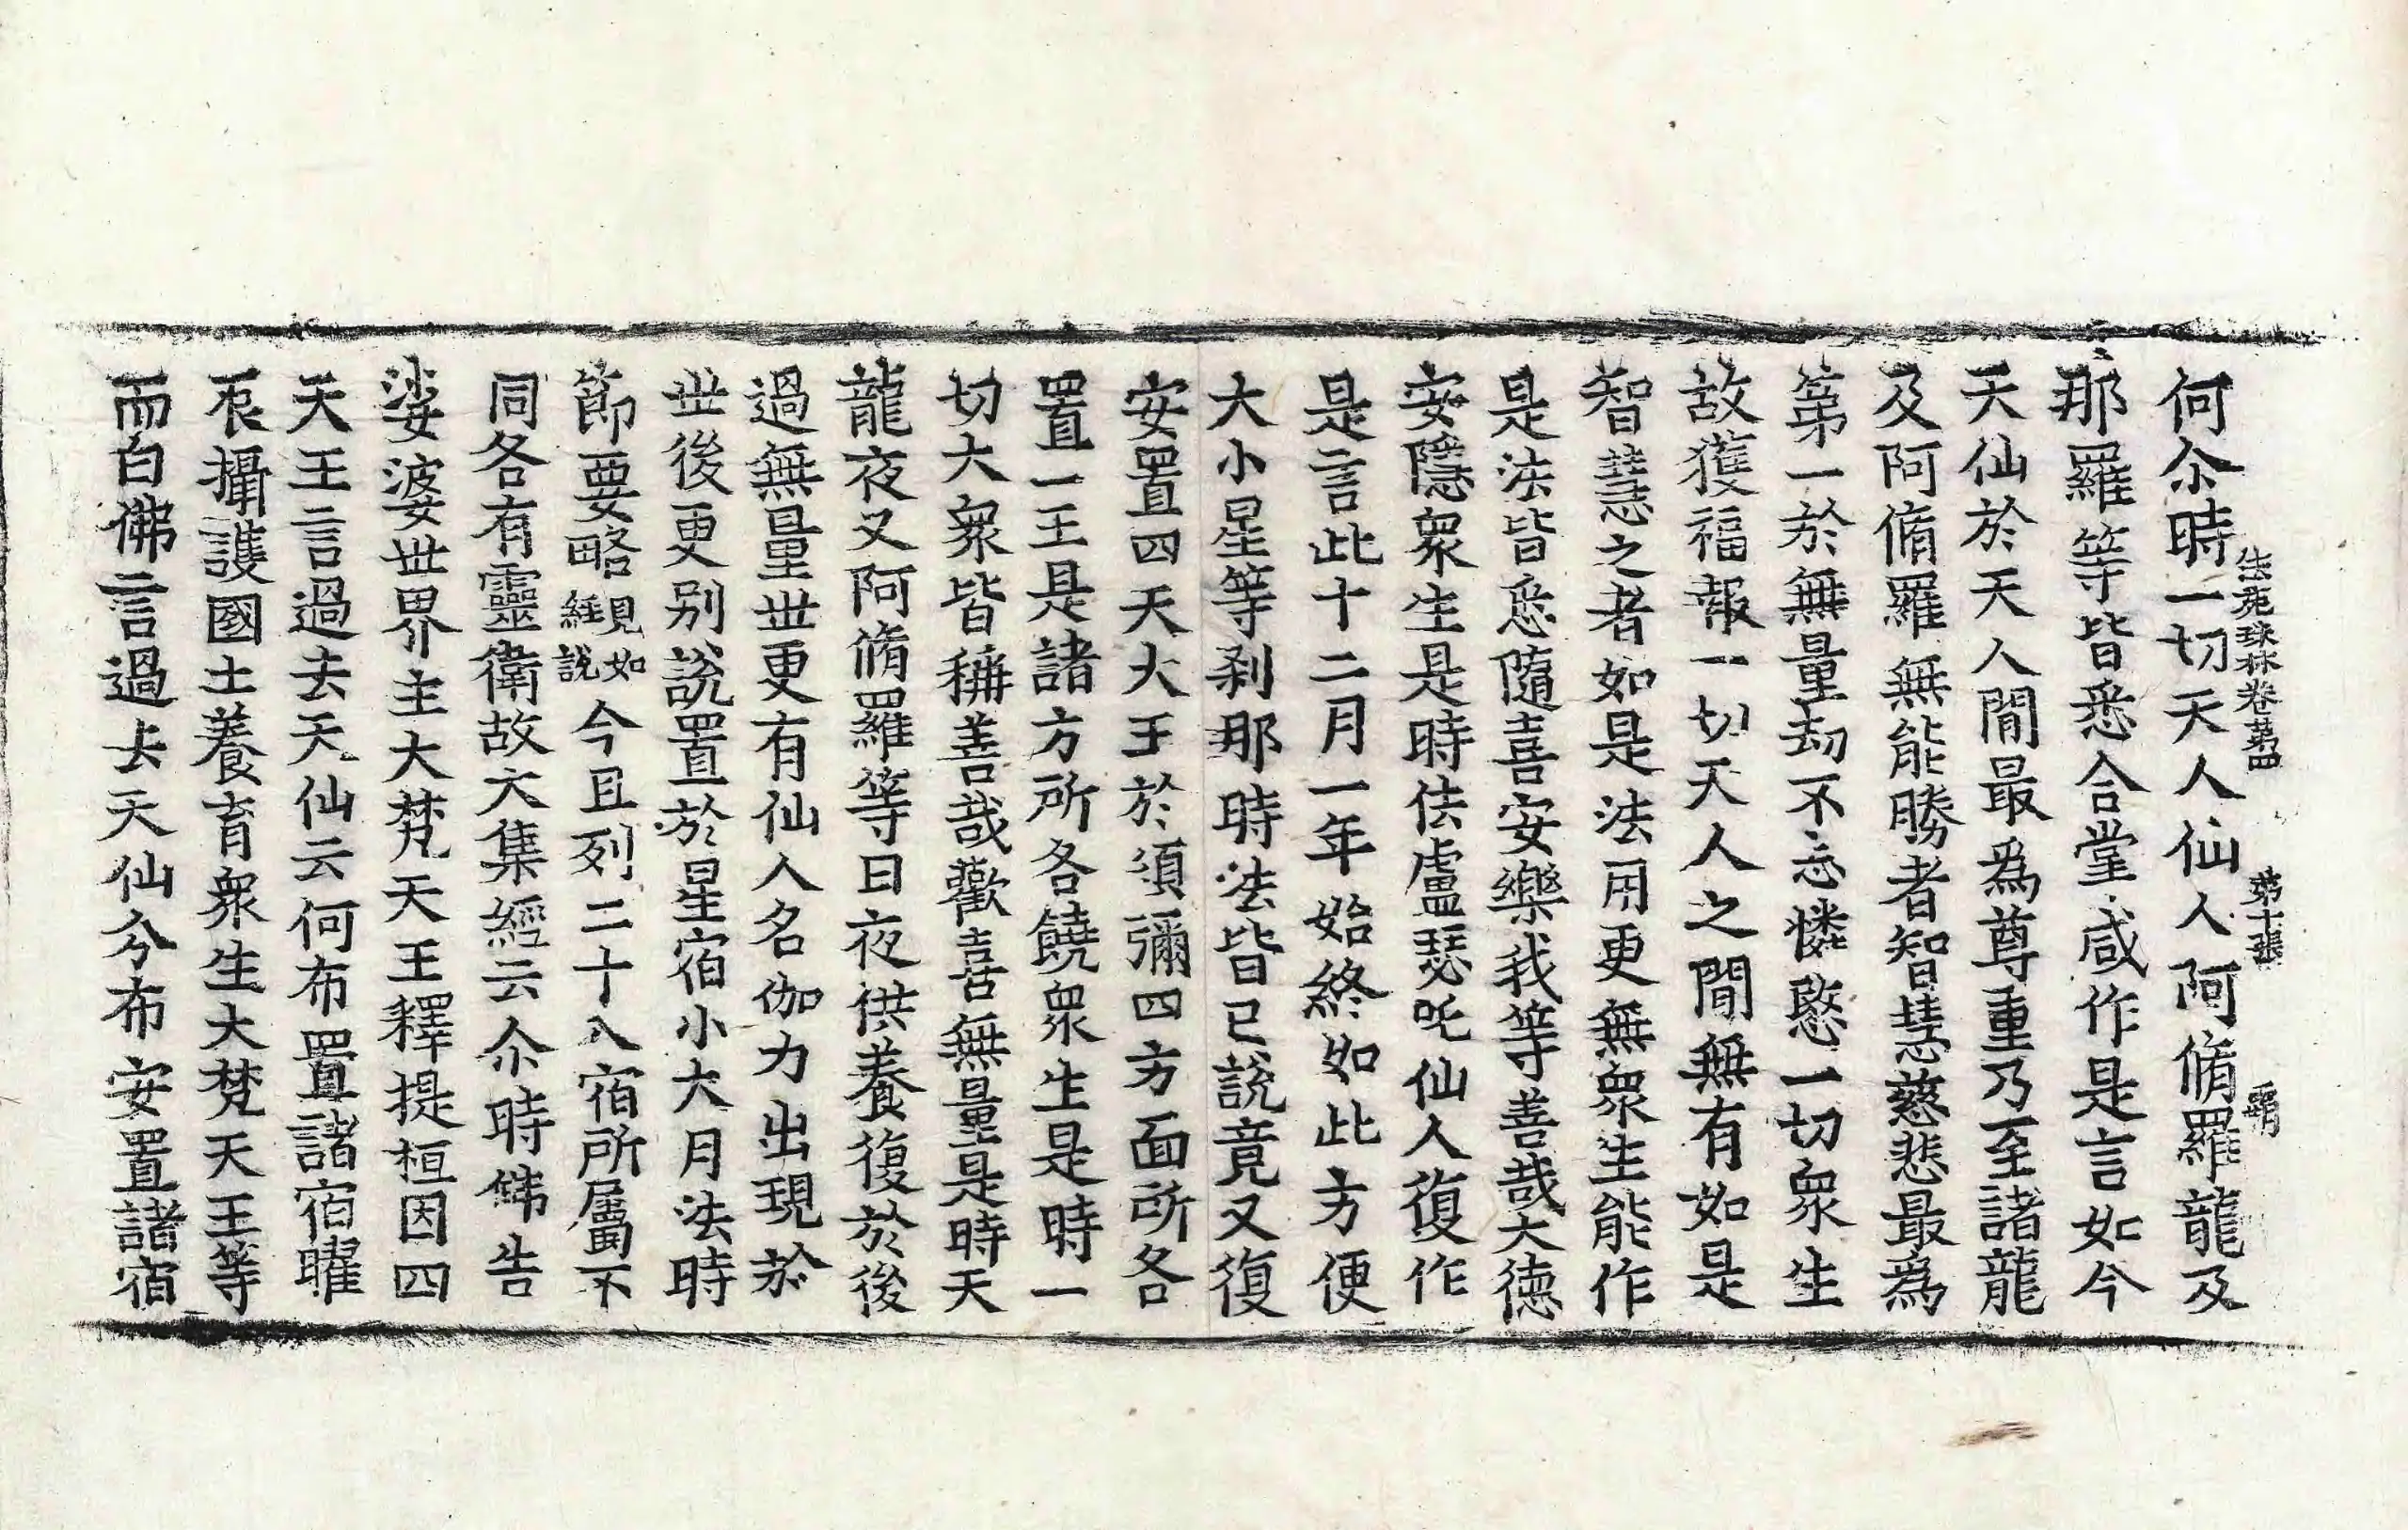 法苑珠林卷第四 第十張
何尒時一切天人仙人阿脩羅龍及
那羅等皆悉合堂咸作是言如今
天仙於天人間最爲尊重乃至諸龍
及阿脩羅無能勝者智慧慈悲最爲
第一於無量劫不忘憐愍一切衆生
故獲福報一切天人之間無有如是
智慧之者如是法用更無衆生能作
是法皆悉隨喜安樂我等善哉大德
安隱衆生是時佉盧瑟吒仙人復作
是言此十二月一年始終如此方便
大小星等刹那時法皆已說竟又復
安置四天大王於須彌四方面所各
置一王是諸方所各饒衆生是時一
切大衆皆稱善哉歡喜無量是時天
龍夜叉阿脩羅等日夜供養復於後
過無量世更有仙人名伽力出現於
世後更别說置於星宿小大月法時
節要略見如經說今且列二十八宿所屬不
同各有靈衛故大集經云尒時佛告
娑婆世界主大梵天王釋提桓因四
天王言過去天仙云何布置諸宿曜
辰攝護國土養育衆生大梵天王等
而白佛言過去天仙分布安置諸宿